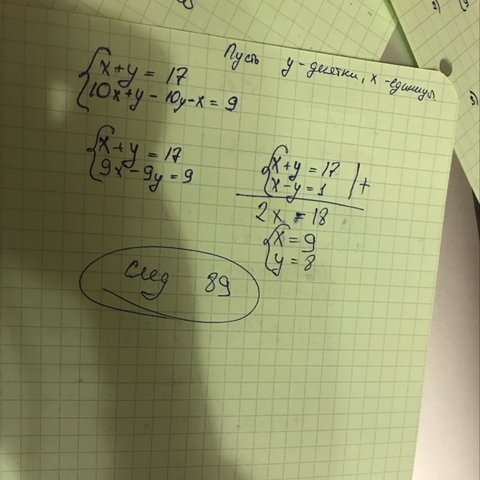 Пусть y - десятки, x - единицы
x + y = 17
10x + y - 10y - x = 9
x + y = 17
9x - 9y = 9
x + y = 17
x - y = 1 | +
2x = 18
x = 9
y = 8
след 89
2)
3)